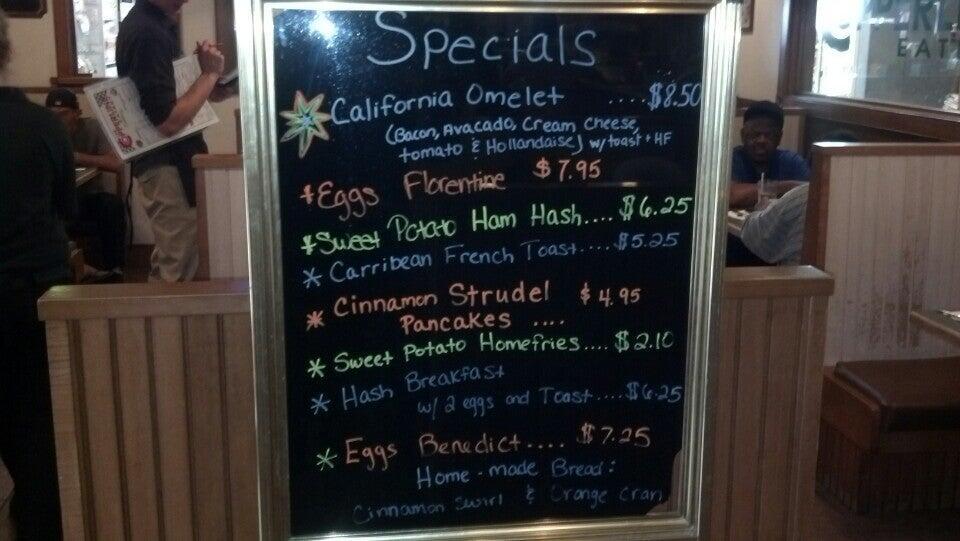 Specials
California Omelet ....$8.50
(Bacon, Avacado, Cream Cheese,
tomato & Hollandaise) w/toast + HF
Eggs Florentine $7.95
Sweet Potato Ham Hash.... $6.25
* Carribean French Toast....$5.25
* Cinnamon Strudel $4.95
Pancakes ....
* Sweet Potato Homefries.... $2.10
* Hash Breakfast
w/ 2 eggs and Toast....$6.25
* Eggs Benedict.... $7.25
Home-made Bread:
Cinnamon Swirl & Orange Cran
EAT